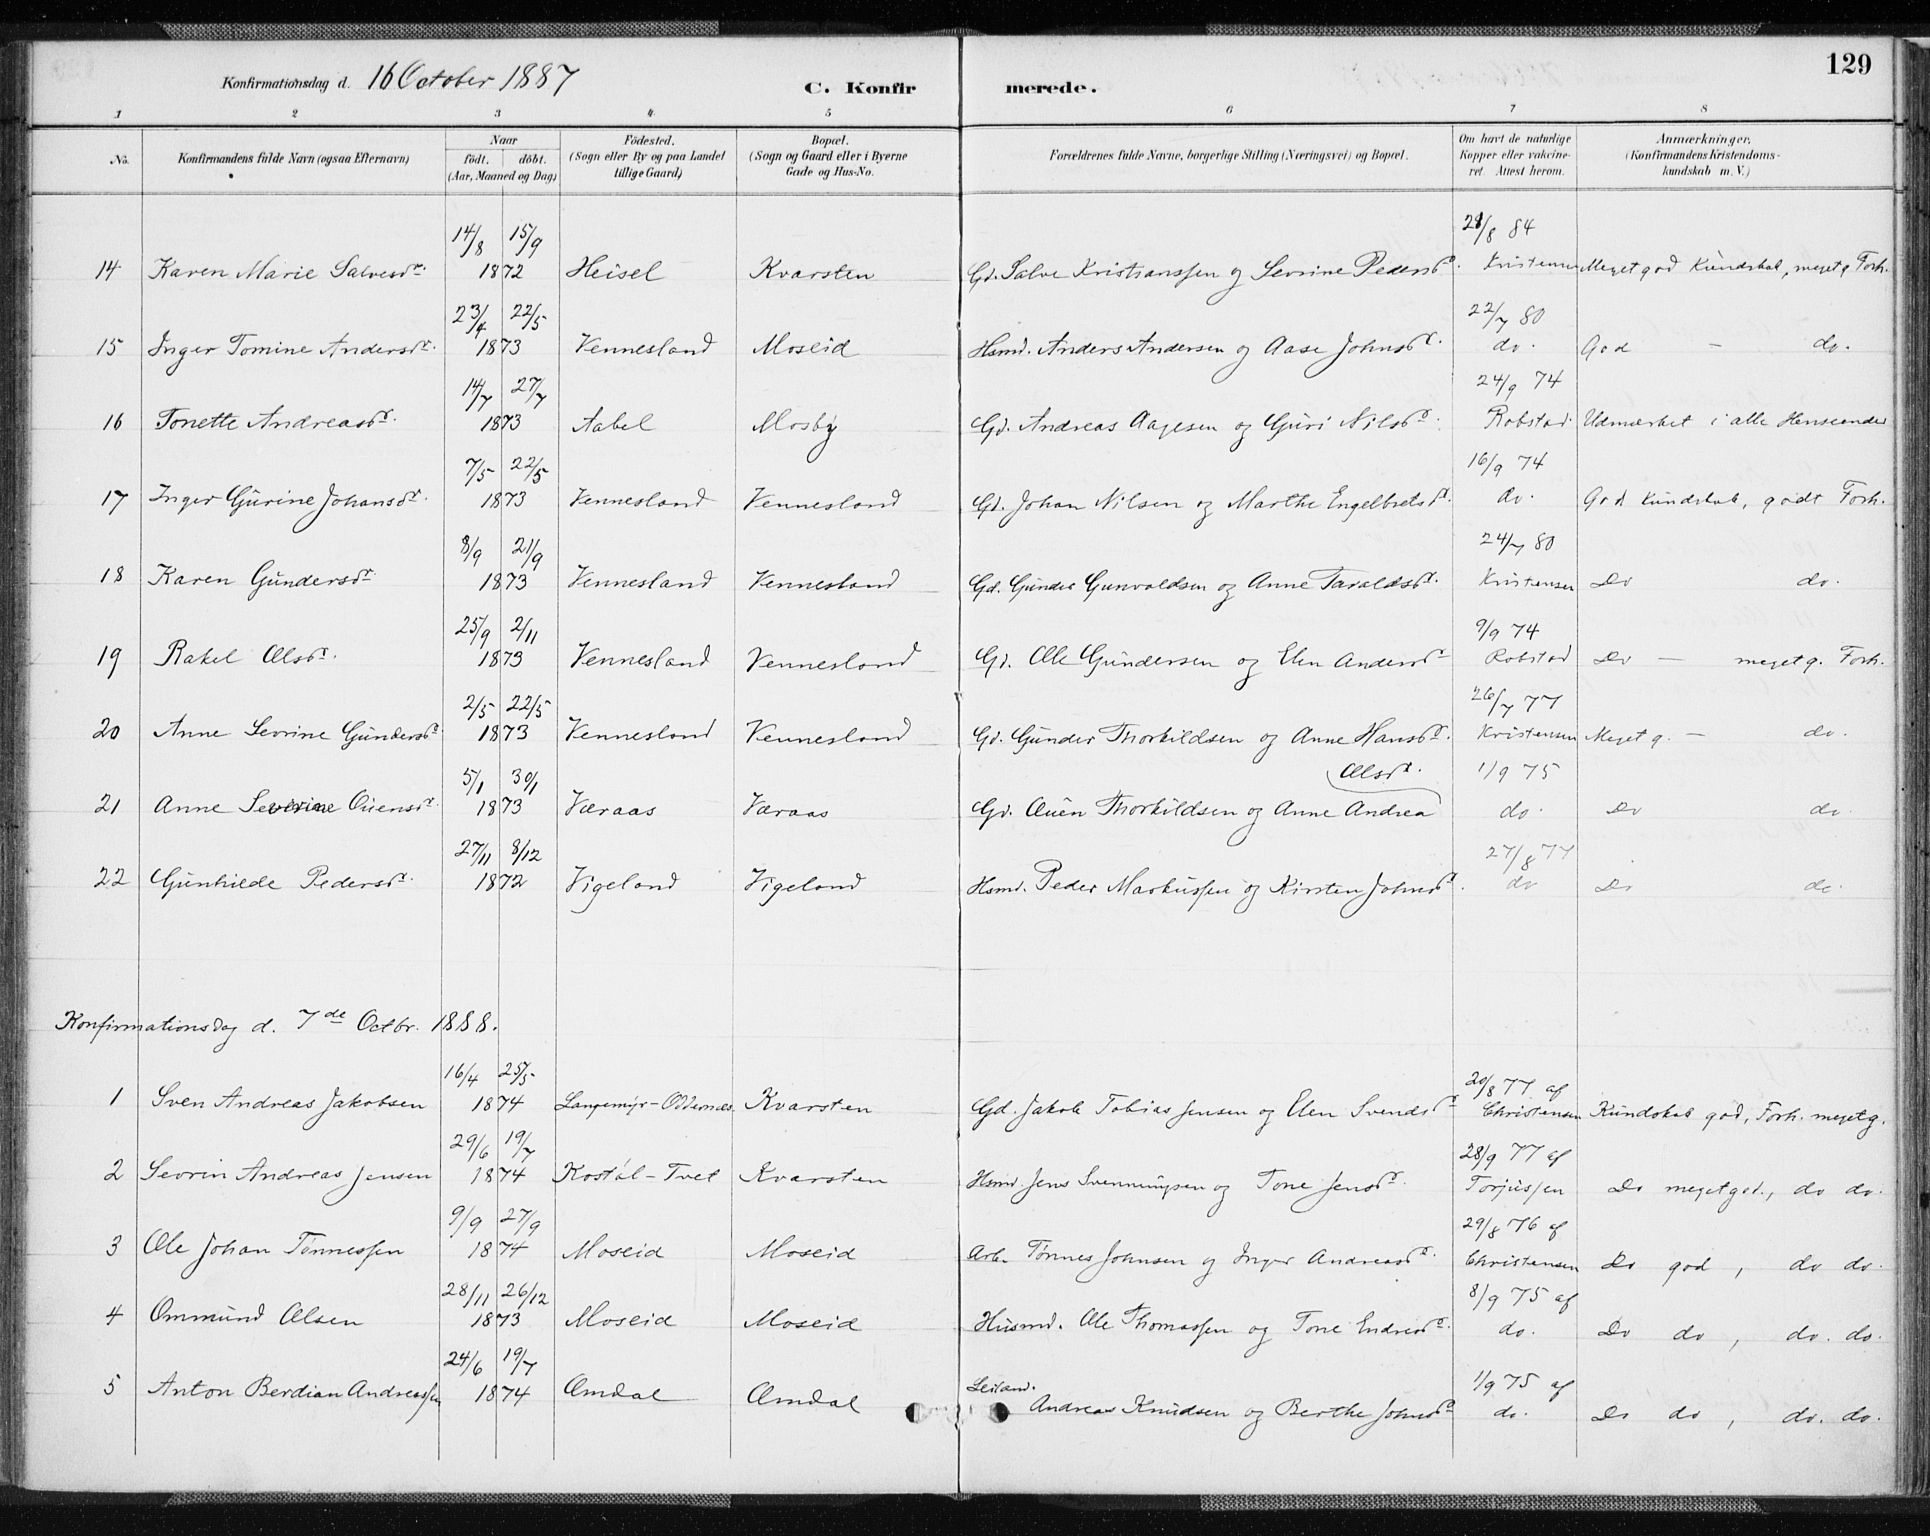 129
Konfirmationsdag d. 16 October 1887 C. Konfir merede.
1 2 3 4 5 6 7 8
No. Konfirmandens fulde Navn (ogsaa Efternavn) Naar født. døbt. (Aar, Maaned og Dag) Fødested. (Sogn eller By og paa Landet tillige Gaard) Bopæl. (Sogn og Gaard eller i Byerne Gade og Hus-No. Forældrenes fulde Navne, borgerlige Stilling (Næringsvei) og Bopæl. Om havt de naturlige Kopper eller vakcineret. Attest herom. Anmærkninger. (Konfirmandens Kristendomskundskab m. V.)
14/8 15/9 21/8 84
14 Karen Marie Salvesdr. 1872 Heisel Kvarsten Gd. Salve Kristianssen og Sevrine Pedersdr. Kristensen Meget god Kundskab, meget g. Forh.
23/4 22/5 22/7 80
15 Inger Tomine Andersdr. 1873 Vennesland Moseid Hsmd. Anders Andersen og Aase Johnsdr. do. God — do.
14/7 27/7 24/9 74
16 Tonette Andreasdr. 1873 Aabel Mosby Gd. Andreas Aagesen og Guri Nilsdr. Robstad Udmærket i alle Henseender
7/5 22/5 16/9 74
17 Inger Gurine Johansdr. 1873 Vennesland Vennesland Gd. Johan Nilsen og Marthe Engelbretsdr. do. God Kundskab, godt Forh.
8/9 21/9 24/7 80
18 Karen Gundersdr. 1873 Vennesland Vennesland Gd. Gunder Gunvaldsen og Anne Taraldsdr. Kristensen Do do.
25/9 2/11 9/9 74
19 Rakel Olsdr. 1873 Vennesland Vennesland Gd. Ole Gundersen og Elen Andersdr Robstad Do — meget g. Forh.
2/5 22/5 26/7 77
20 Anne Sevrine Gundersdr 1873 Vennesland Vennesland Gd. Gunder Thorkildsen og Anne Hansdr. Kristensen Meget g. — do.
5/1 30/1 Olsdr. 1/9 75
21 Anne Severine Ouensdr. 1873 Væraas Væraas Gd. Ouen Thorkildsen og Anne Andrea do. Do do
27/11 8/12 27/8 77
22 Gunhilde Pedersdr. 1872 Vigeland Vigeland Hsmd. Peder Markussen og Kirsten Johnsdr. do Do do.
Konfirmationsdag d. 7de Octbr. 1888.
16/4 25/5 20/8 77 af
1 Sven Andreas Jakobsen 1874 Langemyr-Oddernæs. Kvarsten Gd. Jakob Tobias Jensen og Elen Svendsdr Christensen Kundskab god, Forh. meget g.
29/6 19/7 28/9 77 af
2 Sevrin Andreas Jensen 1874 Kostøl-Tvet Kvarsten Hsmd. Jens Svenningsen og Tone Jensdr. Torjussen Do meget god., do do.
9/9 27/9 29/8 76 af
3 Ole Johan Tønnessen 1874 Moseid Moseid Arb. Tønnes Johnsen og Inger Andreasdr. Christensen Do god, do do.
28/11 26/12 8/9 75 af
4 Ommund Olsen 1873 Moseid Moseid Husmd. Ole Thomassen og Tone Endresdr. do. Do do, do. do.
24/6 19/7 Leiland. 1/9 75 af
5 Anton Berdian Andreassen 1874 Omdal Omdal Andreas Knudsen og Berthe Johnsdr do. Do do, do. do.